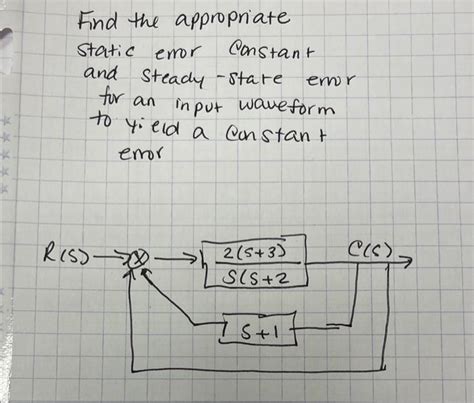 Find the appropriate
static error constant
and steady-state error
for an input waveform
to yield a constant
error
R(S)
2(s+3)
S(S+2
C(S)
S+1